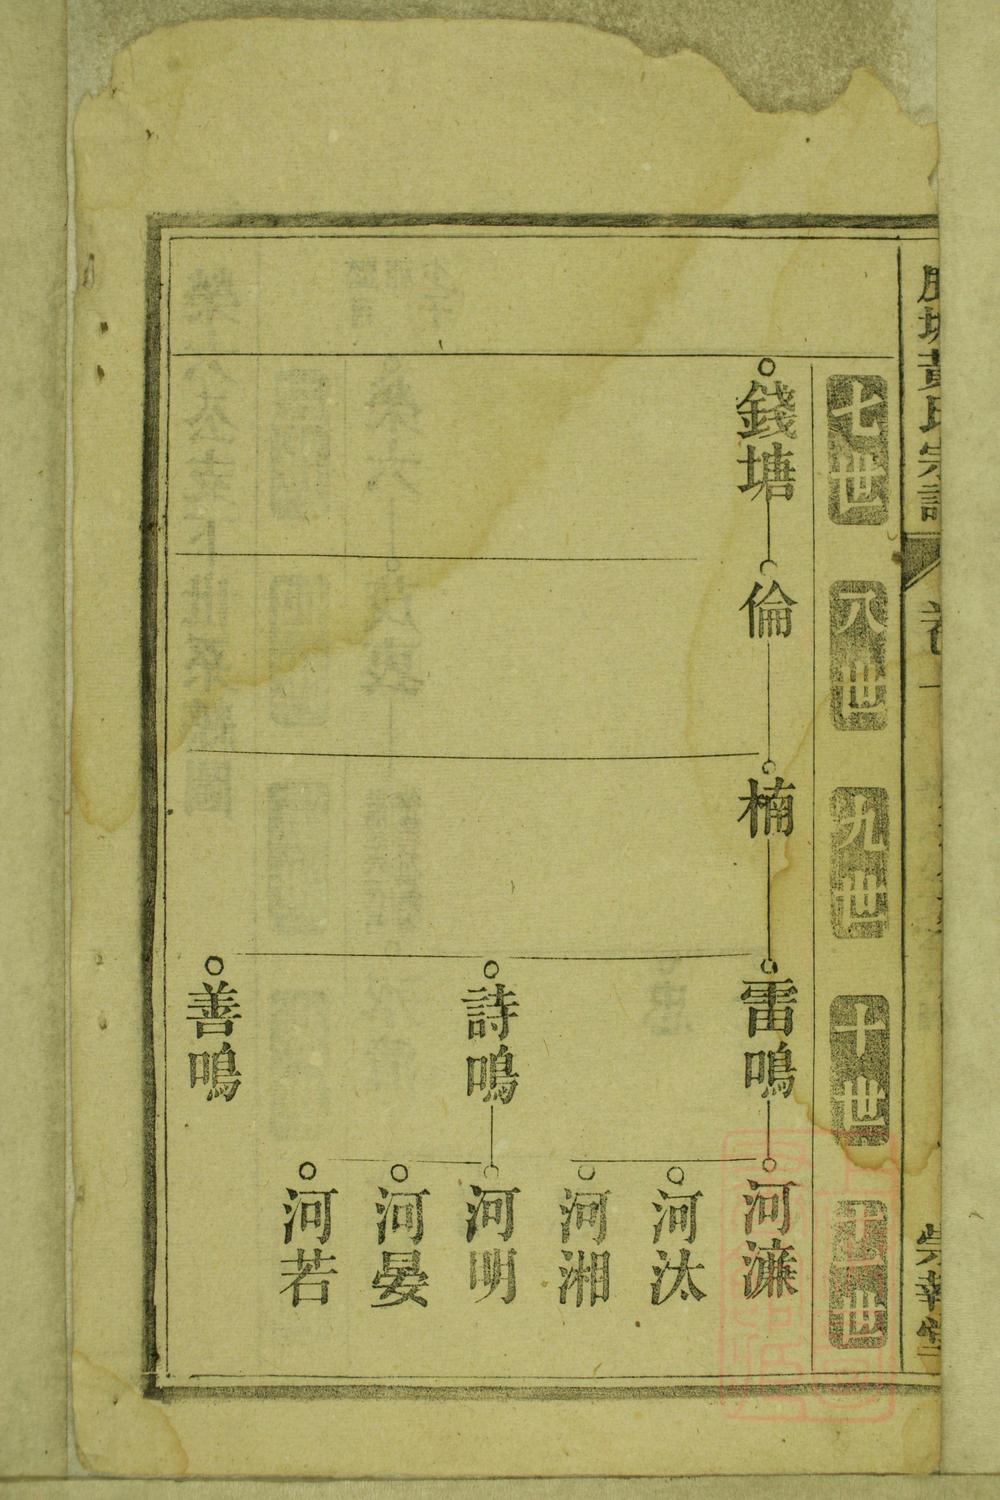 黃氏宗譜
卷一
七世
八世
九世
十世
十一世
錢塘
倫
楠
雷鳴
詩鳴
善鳴
河濂
河汰
河湘
河明
河晏
河若